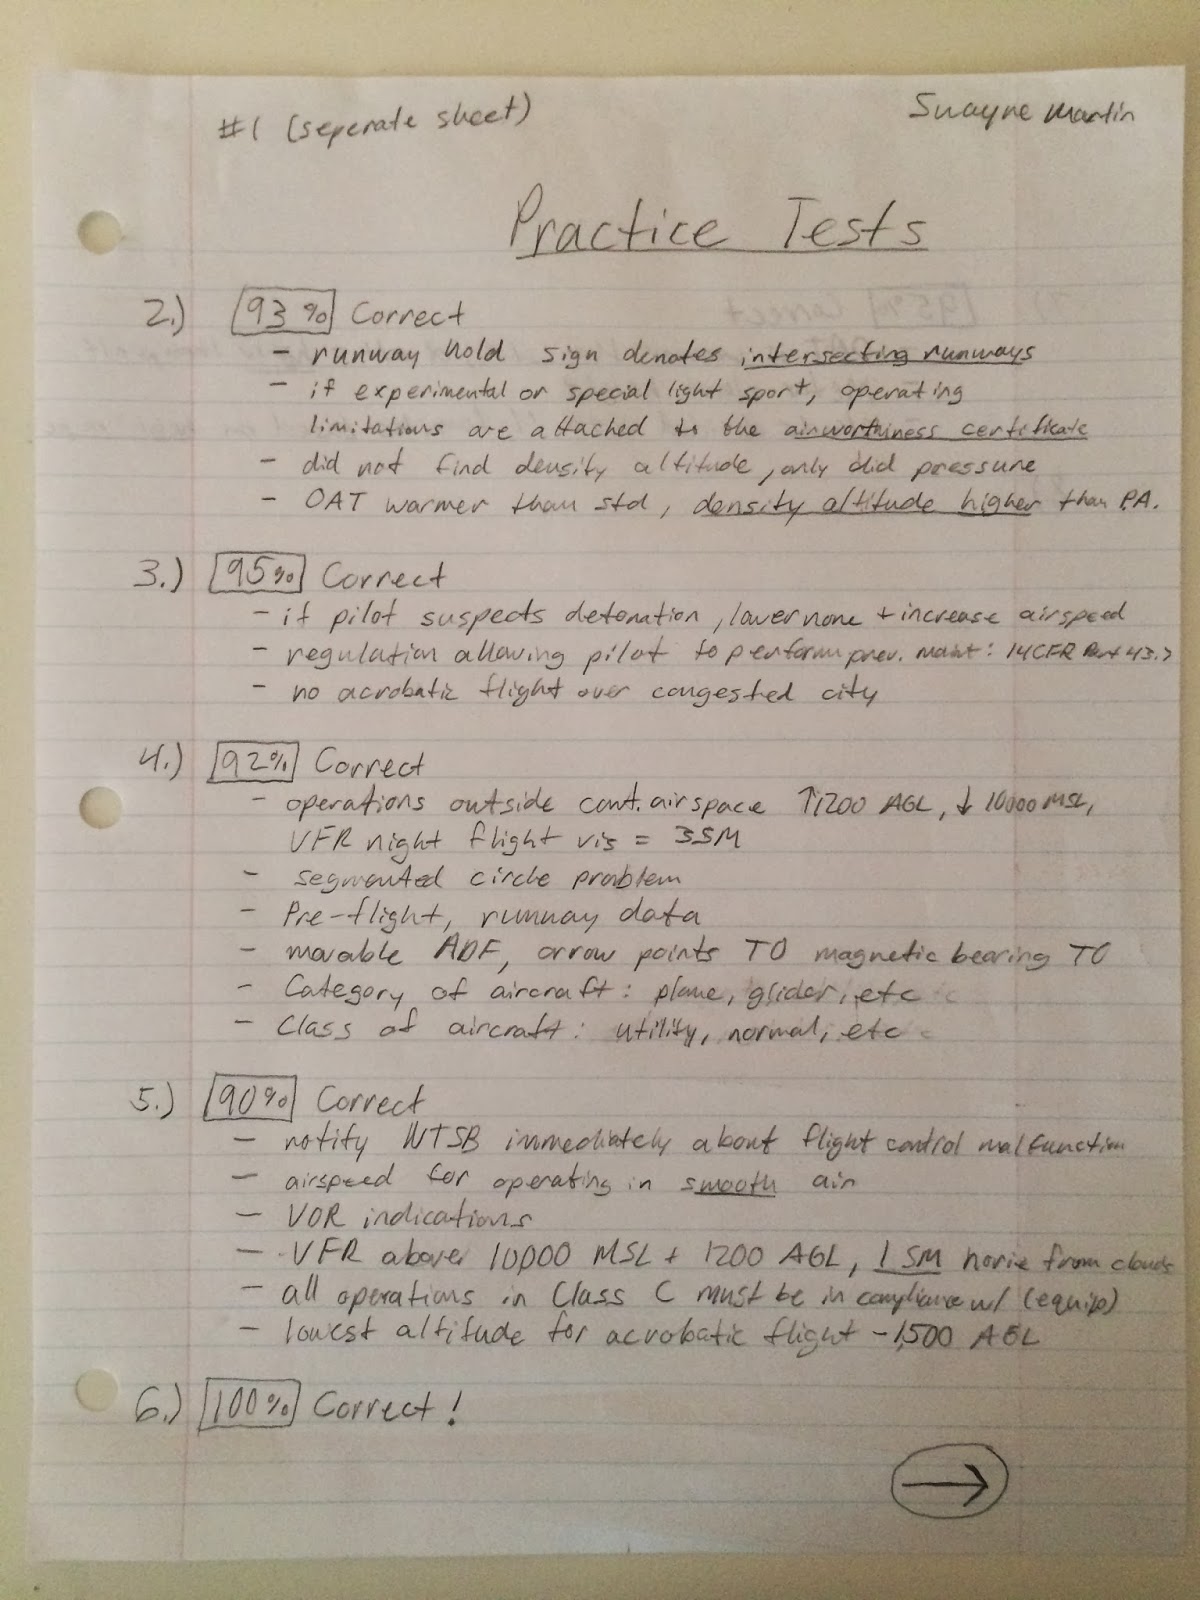 #1 (seperate sheet)
Swayne Martin
Practice Tests
2.) 93% Correct
- runway hold sign denotes intersecting runways
- if experimental or special light sport, operating
limitations are attached to the airworthiness certificate
- did not find density altitude, only did pressure
- OAT warmer than std, density altitude higher than P.A.
3.) 95% Correct
- if pilot suspects detonation, lower nose + increase airspeed
- regulation allowing pilot to perform prev. maint: 14CFR Part 43.7
- no acrobatic flight over congested city
4.) 92% Correct
- operations outside cont. airspace ↑1200 AGL, ↓ 10000 MSL,
VFR night flight vis = 3SM
- segmented circle problem
- Pre-flight, runway data
- movable ADF, arrow points TO magnetic bearing TO
- Category of aircraft: plane, glider, etc
- Class of aircraft: utility, normal, etc
5.) 90% Correct
- notify NTSB immediately about flight control malfunction
- airspeed for operating in smooth air
- VOR indications
- VFR above 10,000 MSL + 1200 AGL, 1 SM horiz from clouds
- all operations in Class C must be in compliance w/ (equip)
- lowest altitude for acrobatic flight - 1,500 AGL
6.) 100% Correct!
→